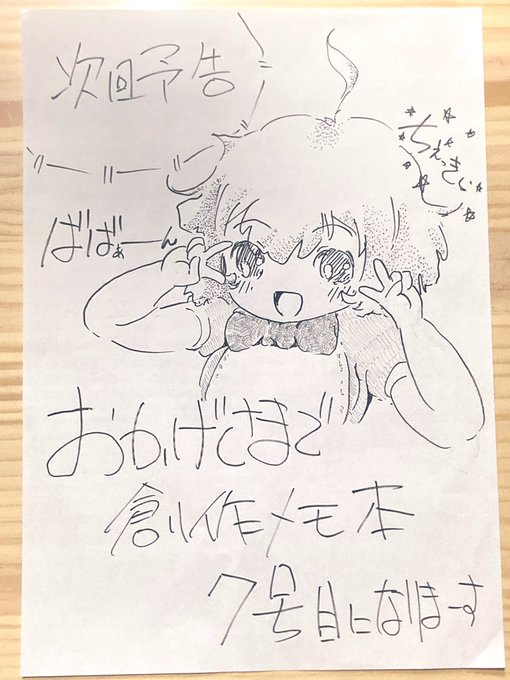 次回予告
ちぇっきぃ
ばばぁーん
おかげさまで
創作メモ本
7号目になりまーす